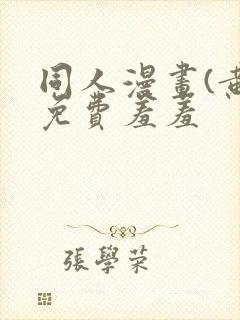 同人漫畫(
免費羞羞
張學荣